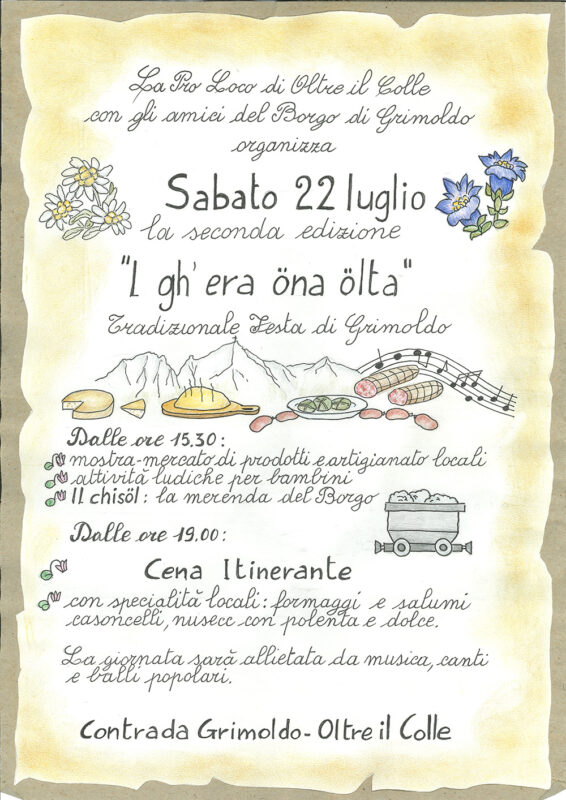 La Pro Loco di Oltre il Colle
con gli amici del Borgo di Grimoldo
organizza
Sabato 22 luglio
la seconda edizione
"I gh'era öna ölta"
Tradizionale Festa di Grimoldo
Dalle ore 15.30:
mostra-mercato di prodotti e artigianato locali
attività ludiche per bambini
Il chisöl: la merenda del Borgo
Dalle ore 19.00:
Cena Itinerante
con specialità locali: formaggi e salumi
casoncelli, nusecc con polenta e dolce.
La giornata sarà allietata da musica, canti
e balli popolari.
Contrada Grimoldo - Oltre il Colle